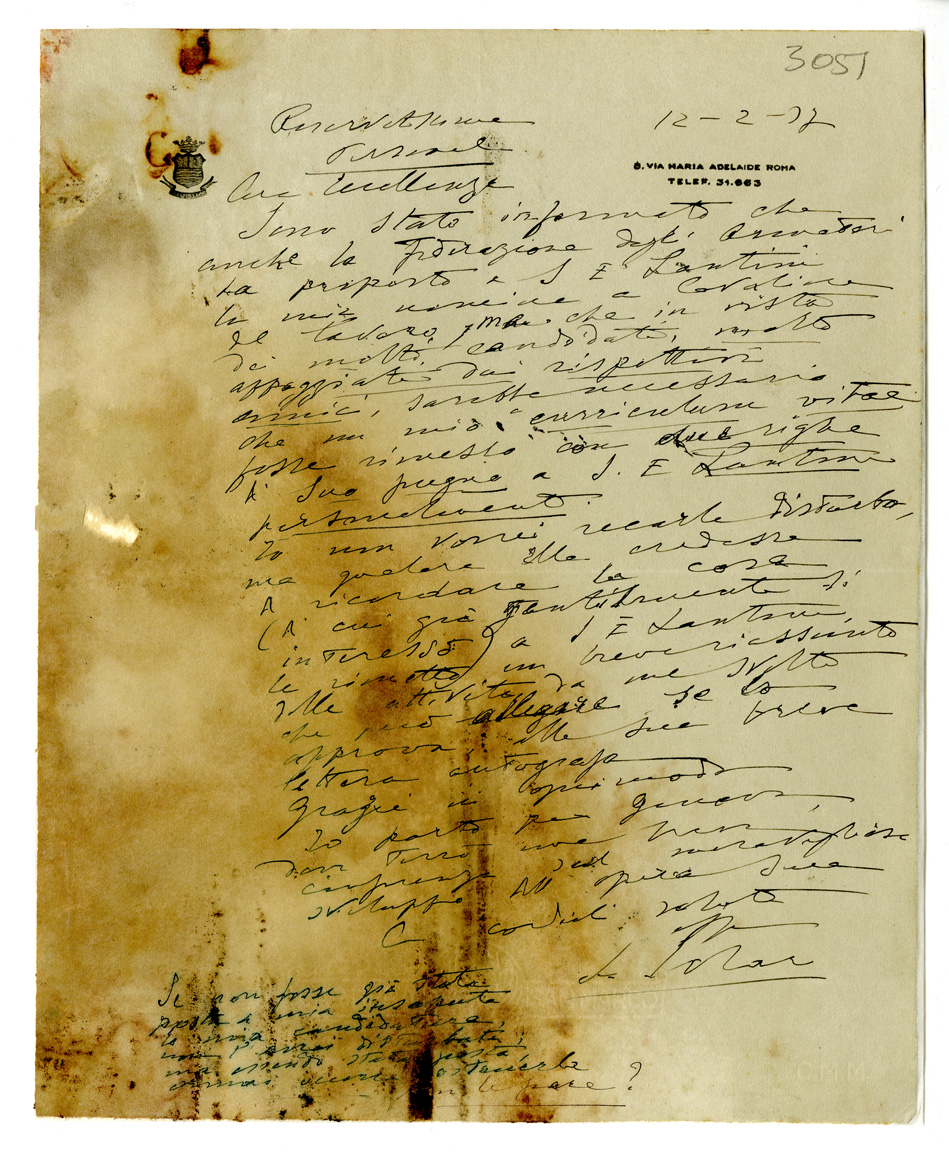 3051
Riservatissima
12-2-37
Personale
6. VIA MARIA ADELAIDE ROMA
TELEF. 31.663
Cara Eccellenza
Sono stato informato che
anche la Federazione degli Armatori
ha proposto a S E Lantini
la mia nomina a Cavaliere
del lavoro, ma che in vista
dei molti candidati, molto
appoggiati dai rispettivi
amici, sarebbe necessario
che un mio "curriculum vitae
fosse rimesso con due righe
di Suo pugno a S. E Lantini
personalmente.
Io non vorrei recarle disturbo,
ma qualora Ella credesse
di ricordare la cosa
(di cui già gentilmente si
interessò) a S E Lantini,
le rimetto un breve riassunto
delle attività da me svolte
che può allegare se lo
approva, alla sua breve
lettera autografa
Grazie in ogni modo
Io parto per Genova,
dove terrò una
conferenza sul meraviglioso
sviluppo dell' opera Sua
Con cordiali saluti
aff
Se non fosse già stata
posta a mia insaputa
la mia candidatura,
non l'avrei disturbata;
ma essendo stata posta
ormai occorre sostenerla
non le pare?